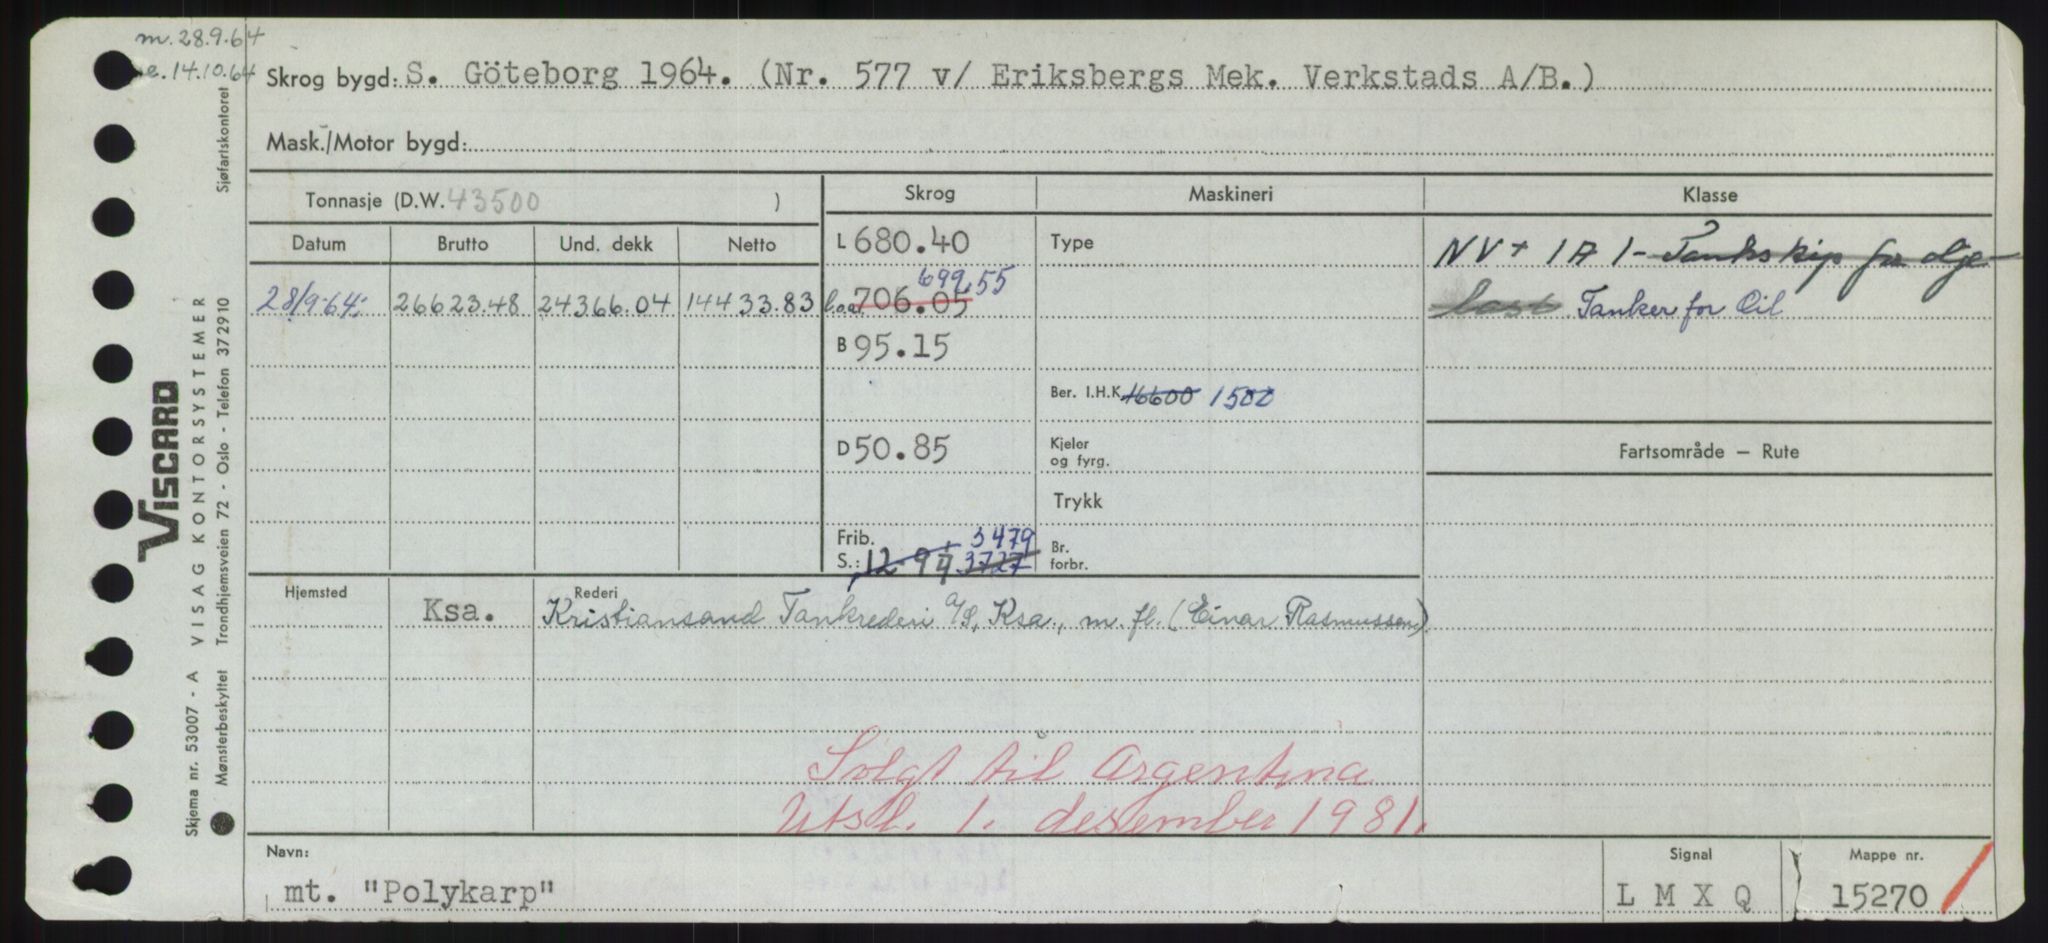 m. 28.9.64
e. 14.10.64
Skrog bygd: S. Göteborg 1964. (Nr. 577 v/ Eriksbergs Mek. Verkstads A/B.)
Mask./Motor bygd:
Tonnasje (D.W. 43500 )
Skrog
Maskineri
Klasse
Datum
Brutto
Und. dekk
Netto
L 680.40
Type
NV + 1A1 - Tankskip for olje-
699.55
28/9-64: 26623.48 24366.04 14433.83
b.o.a. 706.05
last Tanker for Oil
B 95.15
Ber. I.H.K. 16600 1500
D 50.85
Kjeler
og fyrg.
Fartsområde — Rute
Trykk
Frib. 3479
S.: 12-9 3727
Br.
forbr.
Hjemsted
Rederi
Ksa. Kristiansand Tankrederi A/S, Ksa., m. fl. (Einar Rasmussen)
Solgt til Argentina
Utsl. 1. desember 1981.
Navn:
mt. "Polykarp"
Signal
L M X Q
Mappe nr.
15270
VISCARD
Skjema nr. 53007 - A VISAG KONTORSYSTEMER
Mønsterbeskyttet Trondhjemsveien 72 - Oslo - Telefon 372910 Sjøfartskontoret